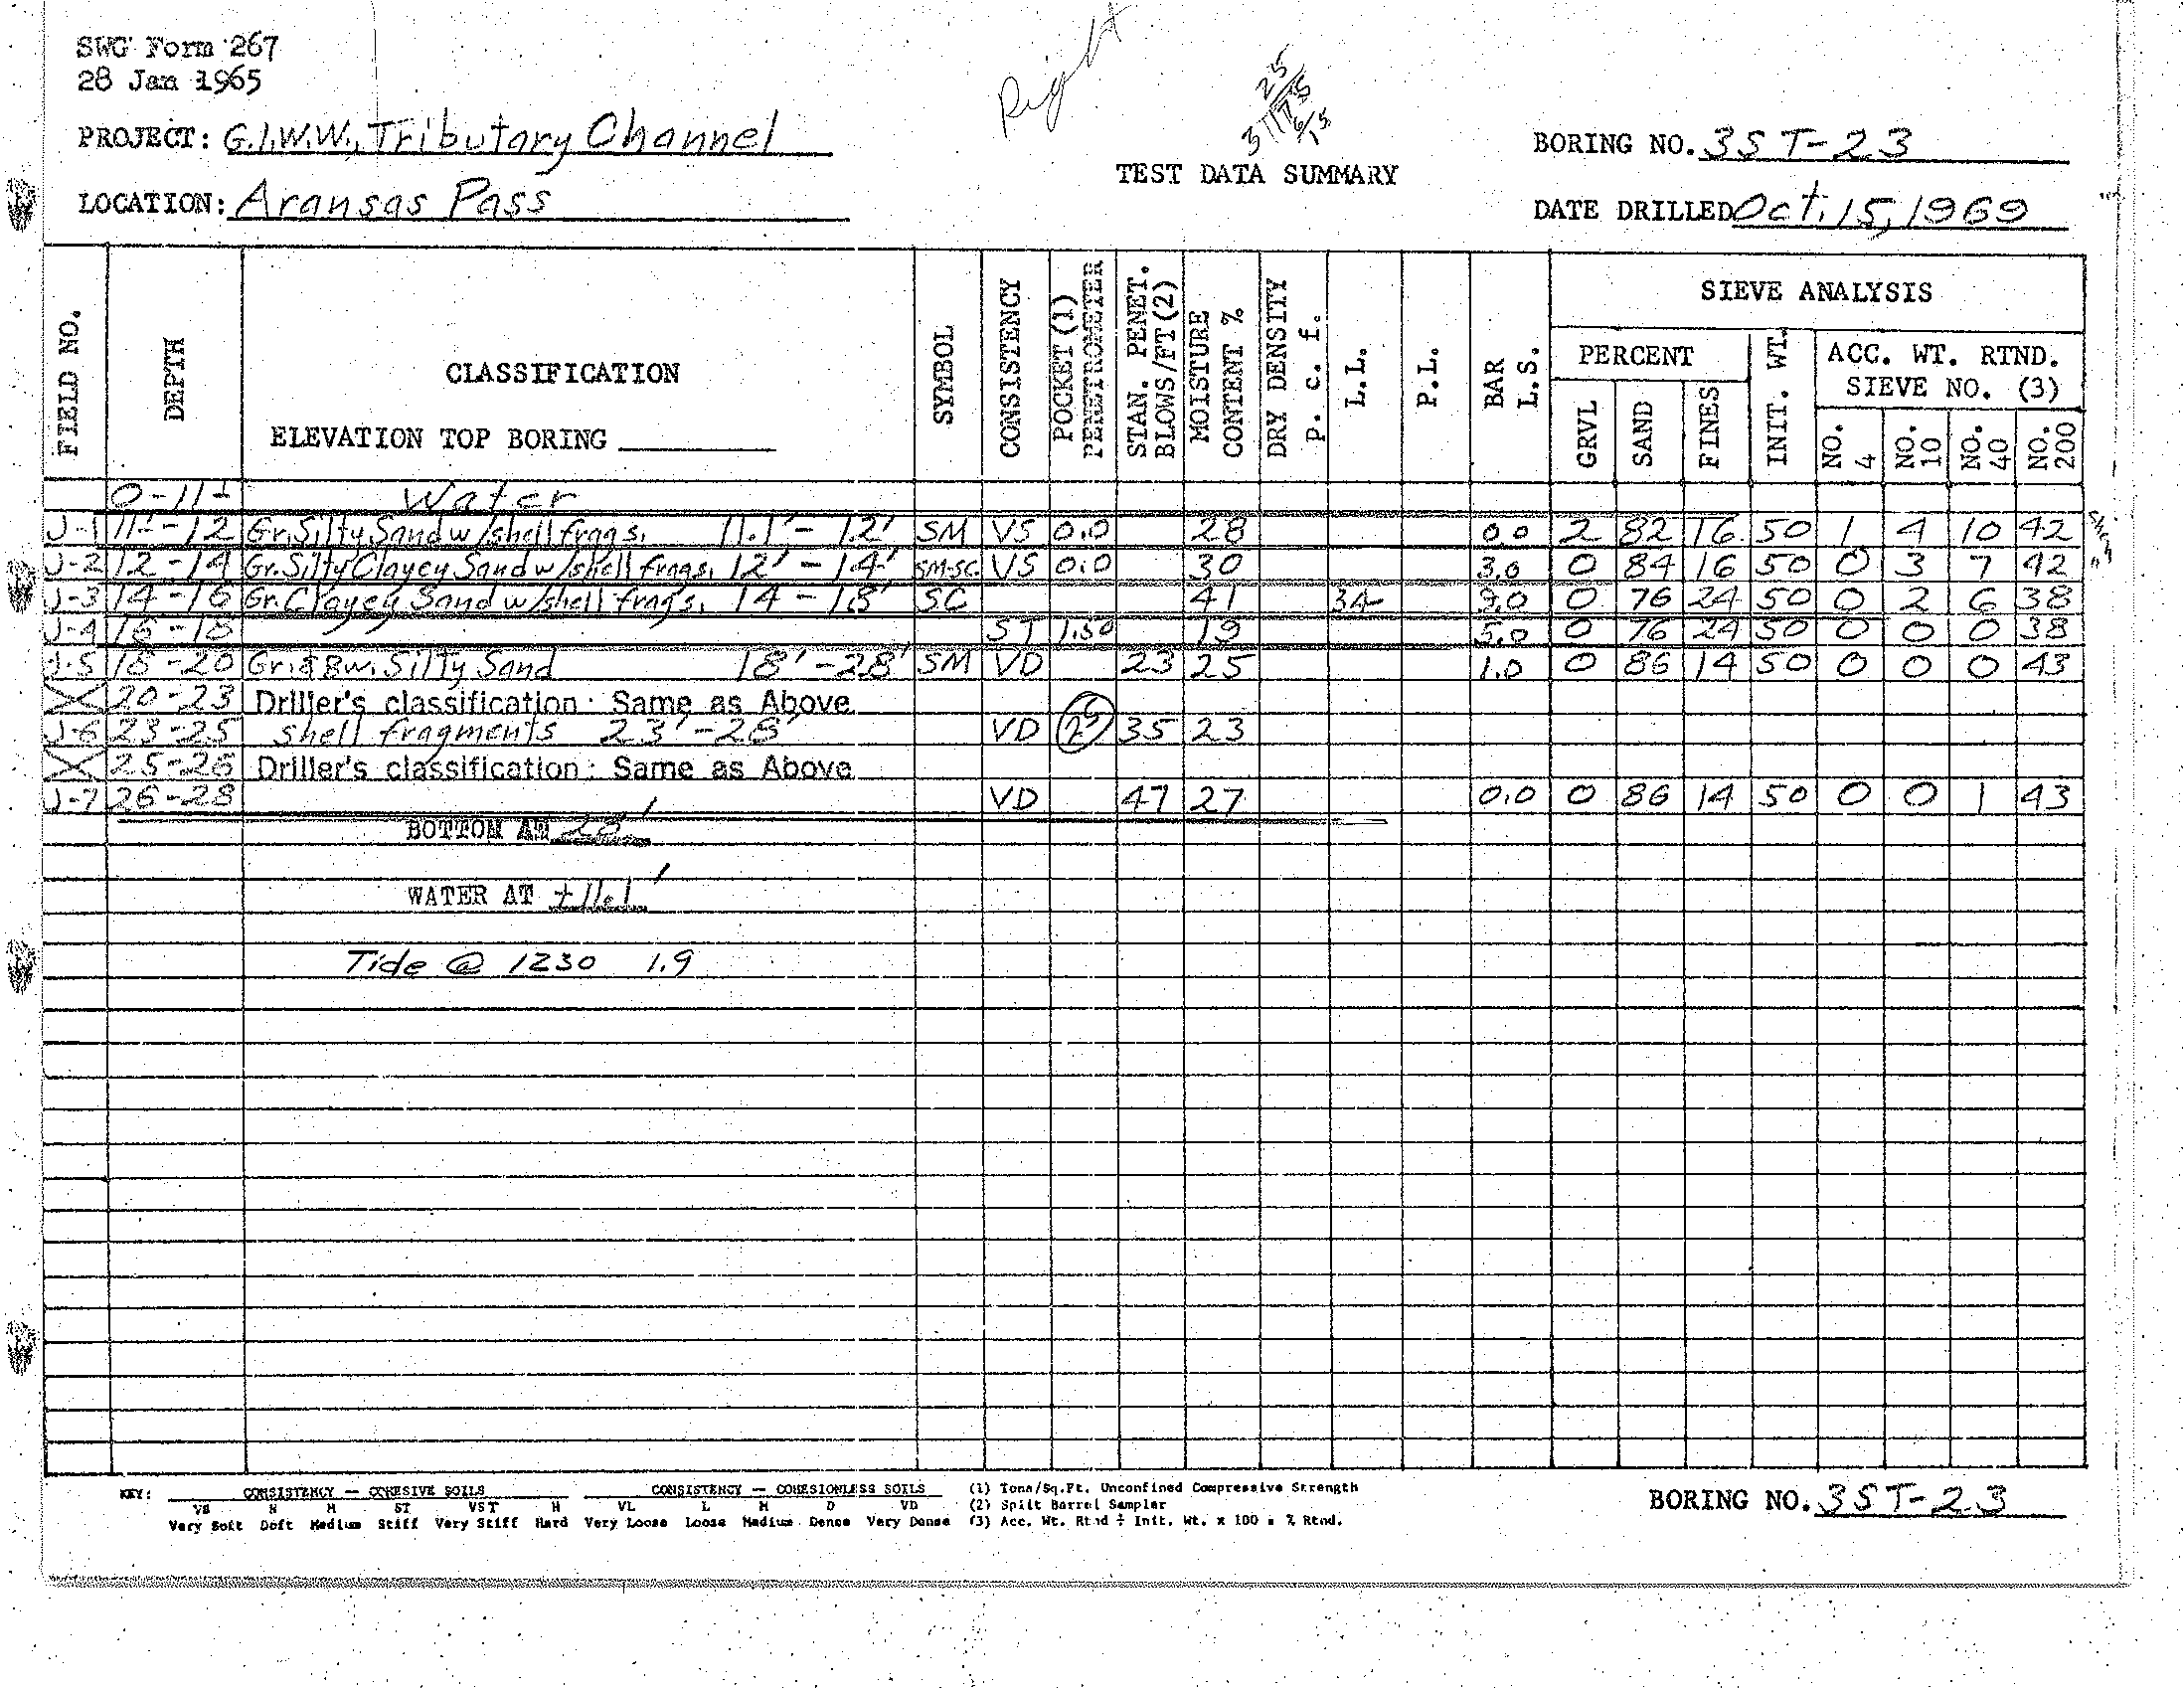 SWG Form 267
28 Jan 1965
Right
25
3/175
6
15
PROJECT: G.I.W.W., Tributary Channel
BORING NO. 3ST-23
TEST DATA SUMMARY
LOCATION: Aransas Pass
DATE DRILLED Oct. 15, 1969
FIELD NO. DEPTH CLASSIFICATION SYMBOL CONSISTENCY POCKET (1) PENETROMETER STAN. PENET. BLOWS/FT (2) MOISTURE CONTENT % DRY DENSITY p. c. f. L.L. P.L. BAR L.S. SIEVE ANALYSIS
PERCENT INIT. WT. ACC. WT. RTND.
SIEVE NO. (3)
ELEVATION TOP BORING
GRVL SAND FINES NO. 4 NO. 10 NO. 40 NO. 200
0-11± Water
J-1 11±-12 Gr. Silty Sand w/shell frags. 11.1'-12' SM VS 0.0 28 0.0 2 82 16 50 1 4 10 42
J-2 12-14 Gr. Silty Clayey Sand w/shell frags. 12'-14' SM-SC VS 0.0 30 3.0 0 84 16 50 0 3 7 42
J-3 14-16 Gr. Clayey Sand w/shell frags. 14-18' SC 41 34 9.0 0 76 24 50 0 2 6 38
J-4 16-18 ST 1.50 19 5.0 0 76 24 50 0 0 0 38
J-5 18-20 Gr. & Bw. Silty Sand 18'-28' SM VD 23 25 1.0 0 86 14 50 0 0 0 43
20-23 Driller's classification: Same as Above
J-6 23-25 shell fragments 23'-28' VD 35 23
25-26 Driller's classification: Same as Above
J-7 26-28 VD 47 27 0.0 0 86 14 50 0 0 1 43
BOTTOM AT 28'
WATER AT ±11.1'
Tide @ 1230 1.9
KEY: CONSISTENCY — COHESIVE SOILS CONSISTENCY — COHESIONLESS SOILS (1) Tons/Sq.Ft. Unconfined Compressive Strength
VS S M ST VST H VL L M D VD (2) Split Barrel Sampler
Very Soft Soft Medium Stiff Very Stiff Hard Very Loose Loose Medium Dense Very Dense (3) Acc. Wt. Rtnd ÷ Init. Wt. x 100 = % Rtnd.
BORING NO. 3ST-23